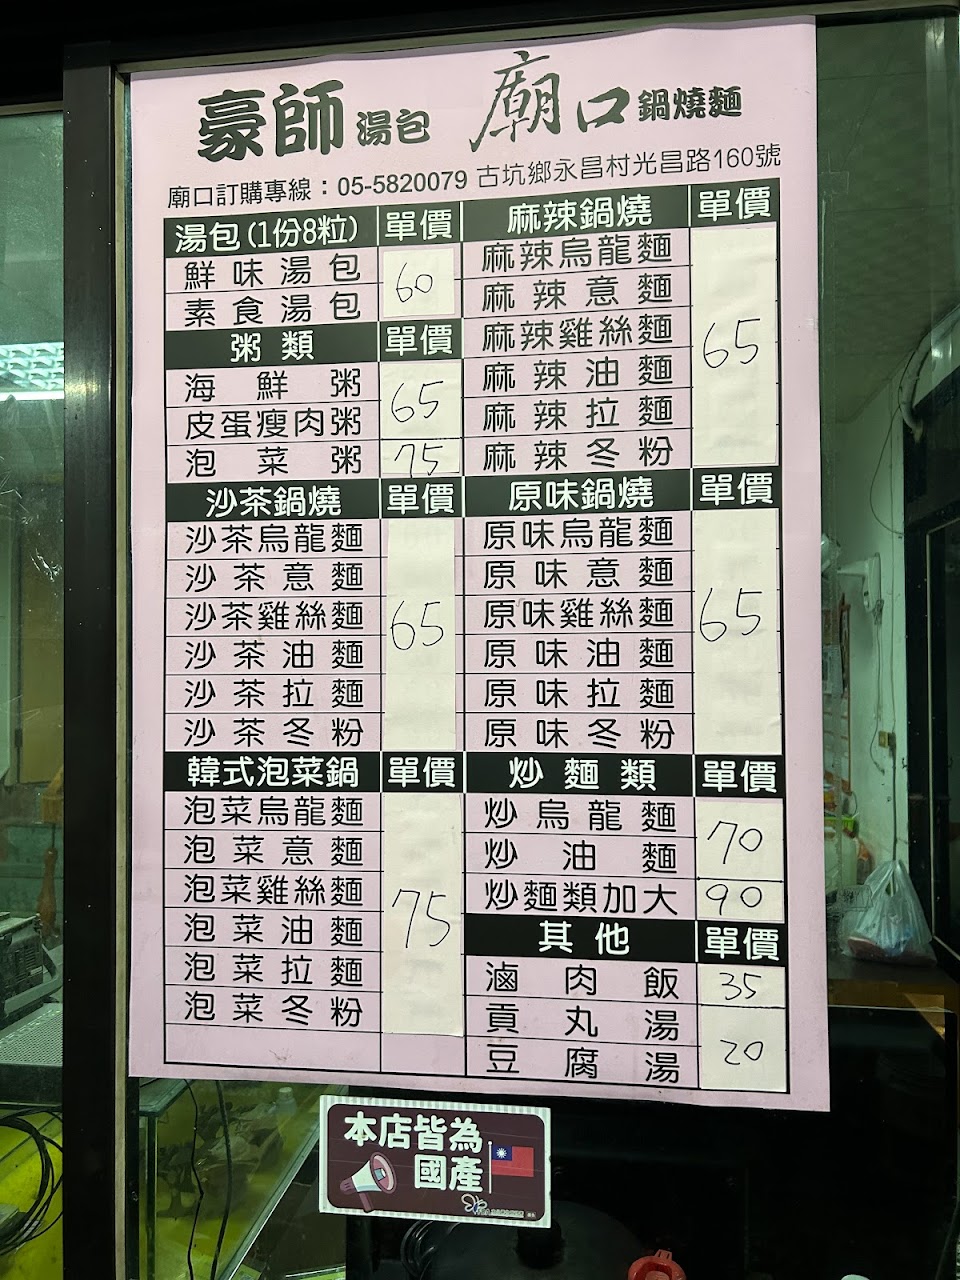 豪師湯包 廟口鍋燒麵
廟口訂購專線：05-5820079 古坑鄉永昌村光昌路160號
湯包(1份8粒) 單價
鮮味湯包 60
素食湯包
粥類 單價
海鮮粥 65
皮蛋瘦肉粥
泡菜粥 75
沙茶鍋燒 單價
沙茶烏龍麵 65
沙茶意麵
沙茶雞絲麵
沙茶油麵
沙茶拉麵
沙茶冬粉
韓式泡菜鍋 單價
泡菜烏龍麵 75
泡菜意麵
泡菜雞絲麵
泡菜油麵
泡菜拉麵
泡菜冬粉
麻辣鍋燒 單價
麻辣烏龍麵 65
麻辣意麵
麻辣雞絲麵
麻辣油麵
麻辣拉麵
麻辣冬粉
原味鍋燒 單價
原味烏龍麵 65
原味意麵
原味雞絲麵
原味油麵
原味拉麵
原味冬粉
炒麵類 單價
炒烏龍麵 70
炒油麵
炒麵類加大 90
其他 單價
滷肉飯 35
貢丸湯 20
豆腐湯
本店皆為
國產